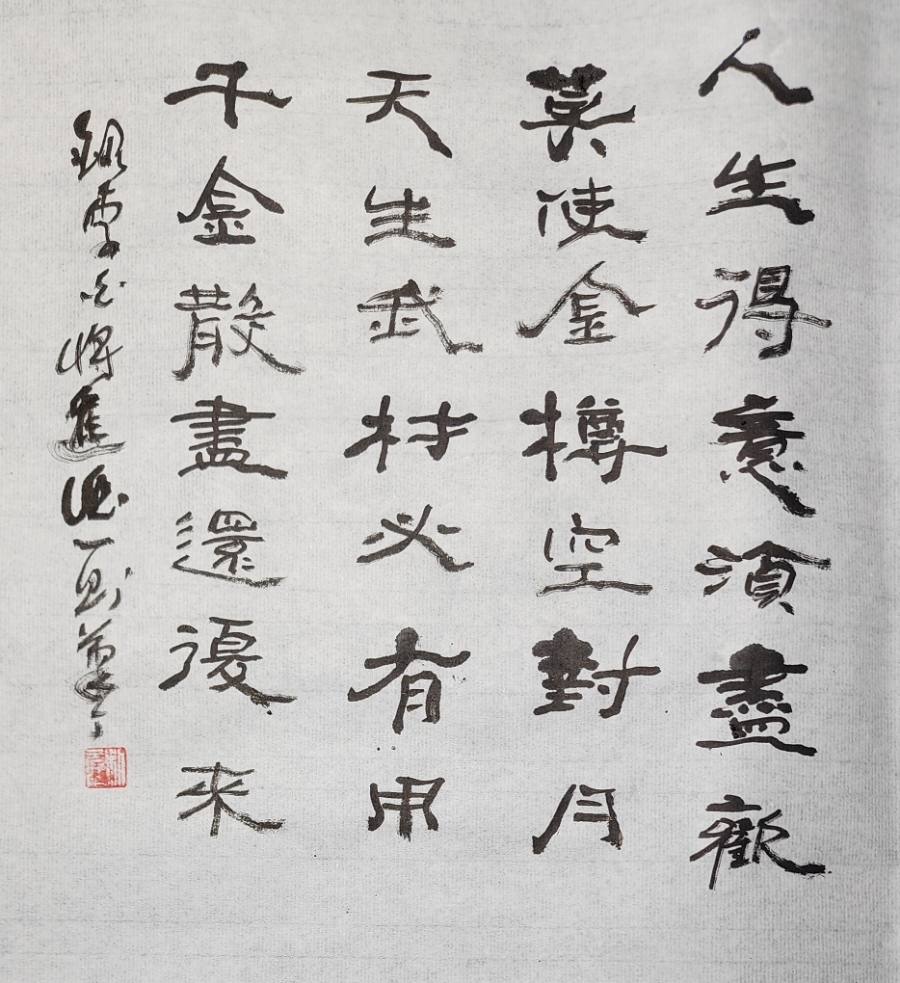 人生得意須盡歡
莫使金樽空對月
天生我材必有用
千金散盡還復來
錄李白將進酒一則